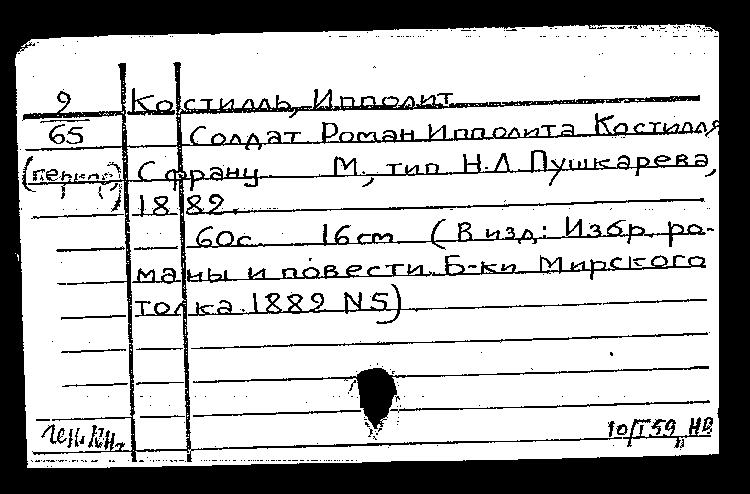 9 Костилль, Ипполит
65 Солдат. Роман Ипполита Костилля
(период) С франц. М., тип. Н.Л. Пушкарева,
1882.
60с. 16cm (В изд.: Избр. ро-
маны и повести. Б-ки Мирского
толка. 1882 N5)
Ген. кн. 10/I 59 НВ